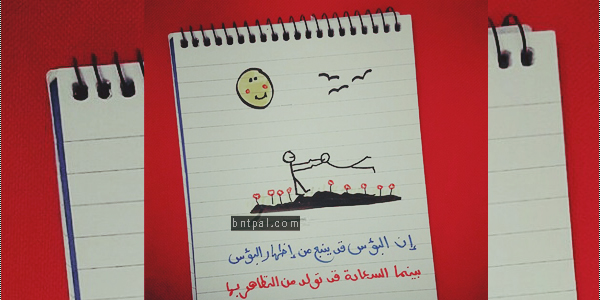 bntpal.com
إن البؤس قد ينبع من إظهار البؤس
بينما السعادة قد تولد من التظاهر بها